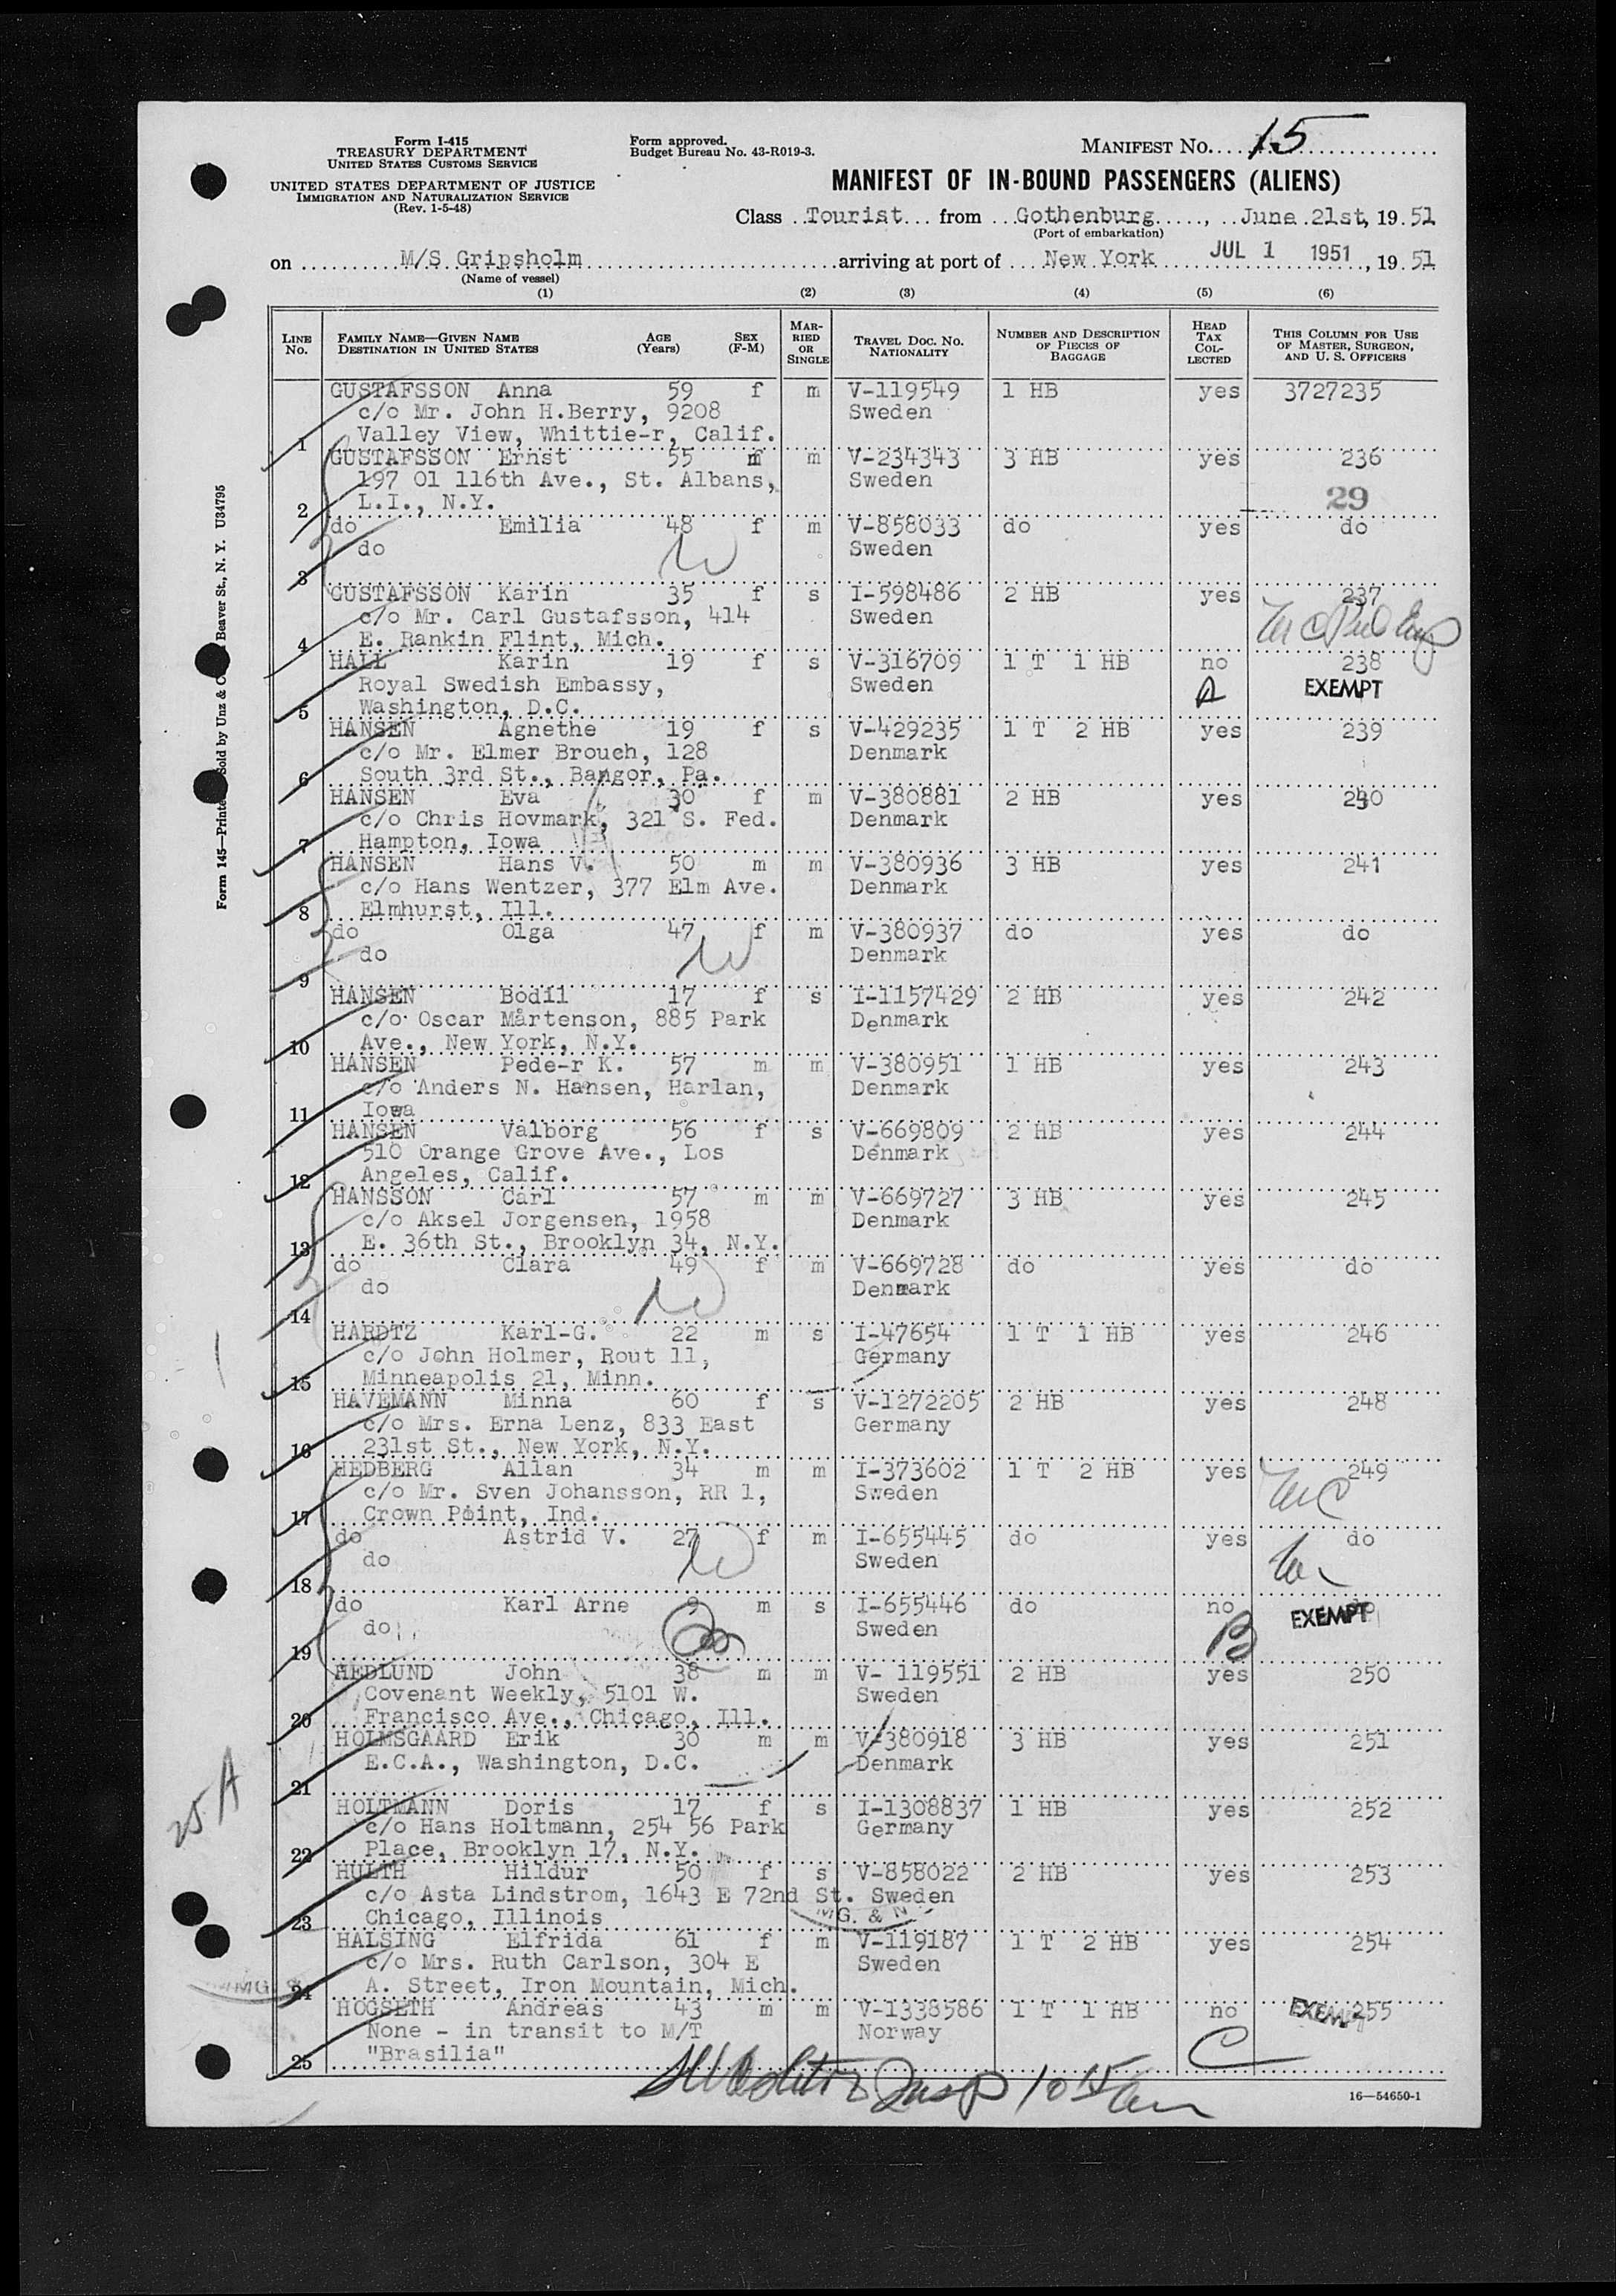 Form I-415
TREASURY DEPARTMENT
UNITED STATES CUSTOMS SERVICE
UNITED STATES DEPARTMENT OF JUSTICE
IMMIGRATION AND NATURALIZATION SERVICE
(Rev. 1-5-48)
Form approved.
Budget Bureau No. 43-R019-3.
MANIFEST NO. 15
MANIFEST OF IN-BOUND PASSENGERS (ALIENS)
Class Tourist from Gothenburg, June 21st, 19 51
(Port of embarkation)
on M/S Gripsholm arriving at port of New York JUL 1 1951, 19 51
(Name of vessel)
(1) (2) (3) (4) (5) (6)
LINE NO. FAMILY NAME—GIVEN NAME DESTINATION IN UNITED STATES AGE (Years) SEX (F-M) MARRIED OR SINGLE TRAVEL DOC. NO. NATIONALITY NUMBER AND DESCRIPTION OF PIECES OF BAGGAGE HEAD TAX COLLECTED THIS COLUMN FOR USE OF MASTER, SURGEON, AND U. S. OFFICERS
GUSTAFSSON Anna 59 f m V-119549 1 HB yes 3727235
c/o Mr. John H.Berry, 9208 Sweden
1 Valley View, Whittie-r, Calif.
GUSTAFSSON Ernst 55 m m V-234343 3 HB yes 236
197 01 116th Ave., St. Albans, Sweden 29
2 L.I., N.Y.
do Emilia 48 f m V-858033 do yes do
do Sweden
3
GUSTAFSSON Karin 35 f s I-598486 2 HB yes 237
c/o Mr. Carl Gustafsson, 414 Sweden
4 E. Rankin Flint, Mich.
HALL Karin 19 f s V-316709 1 T 1 HB no 238
Royal Swedish Embassy, Sweden A EXEMPT
5 Washington, D.C.
HANSEN Agnethe 19 f s V-429235 1 T 2 HB yes 239
c/o Mr. Elmer Brouch, 128 Denmark
6 South 3rd St., Bangor, Pa.
HANSEN Eva 30 f m V-380881 2 HB yes 240
c/o Chris Hovmark, 321 S. Fed. Denmark
7 Hampton, Iowa
HANSEN Hans V. 50 m m V-380936 3 HB yes 241
c/o Hans Wentzer, 377 Elm Ave. Denmark
8 Elmhurst, Ill.
do Olga 47 f m V-380937 do yes do
do Denmark
9
HANSEN Bodil 17 f s I-1157429 2 HB yes 242
c/o Oscar Mårtenson, 885 Park Denmark
10 Ave., New York, N.Y.
HANSEN Pede-r K. 57 m m V-380951 1 HB yes 243
c/o Anders N. Hansen, Harlan, Denmark
11 Iowa
HANSEN Valborg 56 f s V-669809 2 HB yes 244
510 Orange Grove Ave., Los Denmark
12 Angeles, Calif.
HANSSON Carl 57 m m V-669727 3 HB yes 245
c/o Aksel Jorgensen, 1958 Denmark
13 E. 36th St., Brooklyn 34, N.Y.
do Clara 49 f m V-669728 do yes do
do Denmark
14
HARDTZ Karl-G. 22 m s I-47654 1 T 1 HB yes 246
c/o John Holmer, Rout 11, Germany
15 Minneapolis 21, Minn.
HAVEMANN Minna 60 f s V-1272205 2 HB yes 248
c/o Mrs. Erna Lenz, 833 East Germany
16 231st St., New York, N.Y.
HEDBERG Allan 34 m m I-373602 1 T 2 HB yes 249
c/o Mr. Sven Johansson, RR 1, Sweden
17 Crown Point, Ind.
do Astrid V. 27 f m I-655445 do yes do
do Sweden
18
do Karl Arne 9 m s I-655446 do no do EXEMPT
do Sweden B
19
HEDLUND John 38 m m V- 119551 2 HB yes 250
Covenant Weekly, 5101 W. Sweden
20 Francisco Ave., Chicago, Ill.
HOLMSGAARD Erik 30 m m V-380918 3 HB yes 251
E.C.A., Washington, D.C. Denmark
21
25 A
HOLTMANN Doris 17 f s I-1308837 1 HB yes 252
c/o Hans Holtmann, 254 56 Park Germany
22 Place, Brooklyn 17, N.Y.
HULTH Hildur 50 f s V-858022 2 HB yes 253
c/o Asta Lindstrom, 1643 E 72nd St. Sweden
23 Chicago, Illinois
HALSING Elfrida 61 f m V-119187 1 T 2 HB yes 254
c/o Mrs. Ruth Carlson, 304 E Sweden
24 A. Street, Iron Mountain, Mich.
HOGSETH Andreas 43 m m V-1338586 1 T 1 HB no EXEMPT 255
None - in transit to M/T Norway C
25 "Brasilia"
16—54650-1